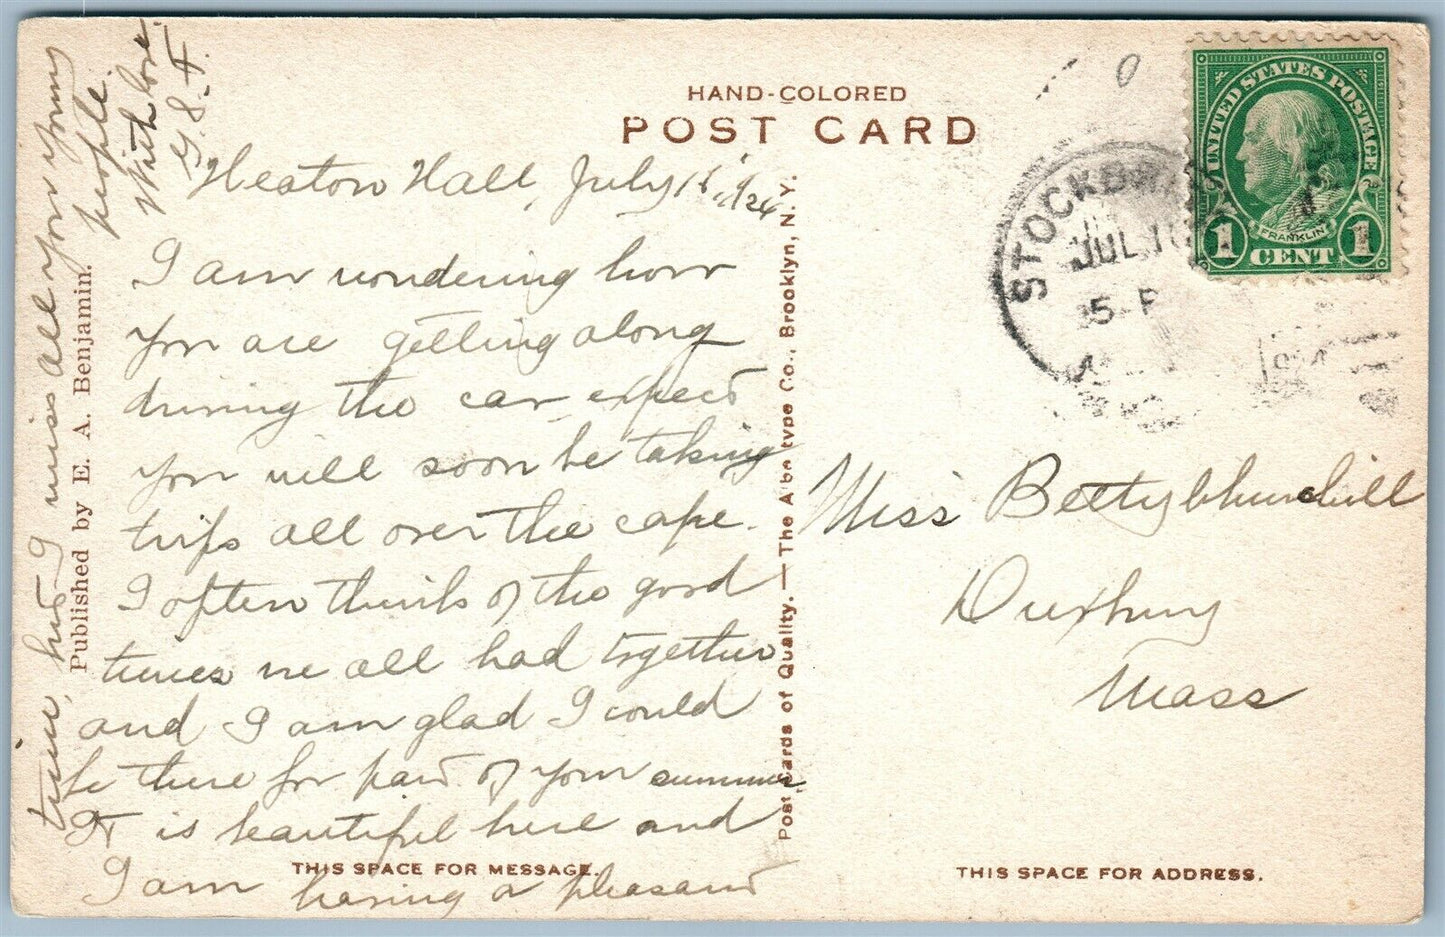 HAND-COLORED
POST CARD
Heaton Hall, July 15, 1926
I am wondering how
you are getting along
driving the car, expect
you will soon be taking
trips all over the cape.
I often think of the good
times we all had together
and I am glad I could
be there for part of your summer
It is beautiful here and
I am having a pleasant
time, but I miss all your young
people.
With love
G. S. F.
THIS SPACE FOR MESSAGE.
Published by E. A. Benjamin.
Post Cards of Quality. — The Albertype Co., Brooklyn, N. Y.
UNITED STATES POSTAGE
FRANKLIN
1 CENT 1
STOCKBRI
JUL 16
5-P
Miss Betty Churchill
Duxbury
Mass
THIS SPACE FOR ADDRESS.